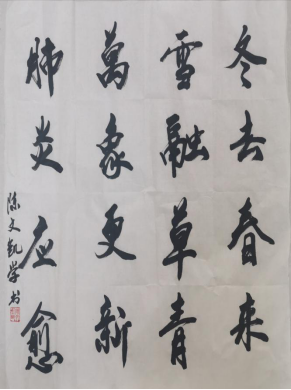 冬去春来
雪融草青
萬象更新
肺炎应愈
陈文凱学书